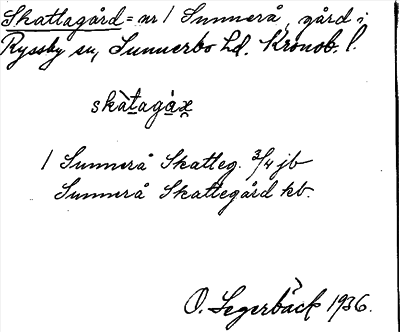 Skattagård = nr 1 Sunnerå, gård i
Ryssby sn, Sunnerbo hd. Kronob. l.
skàtagàx
1 Sunnerå Skatteg. 3/4 jb
Sunnerå Skattegård kb.
O. Segerbäck 1936.